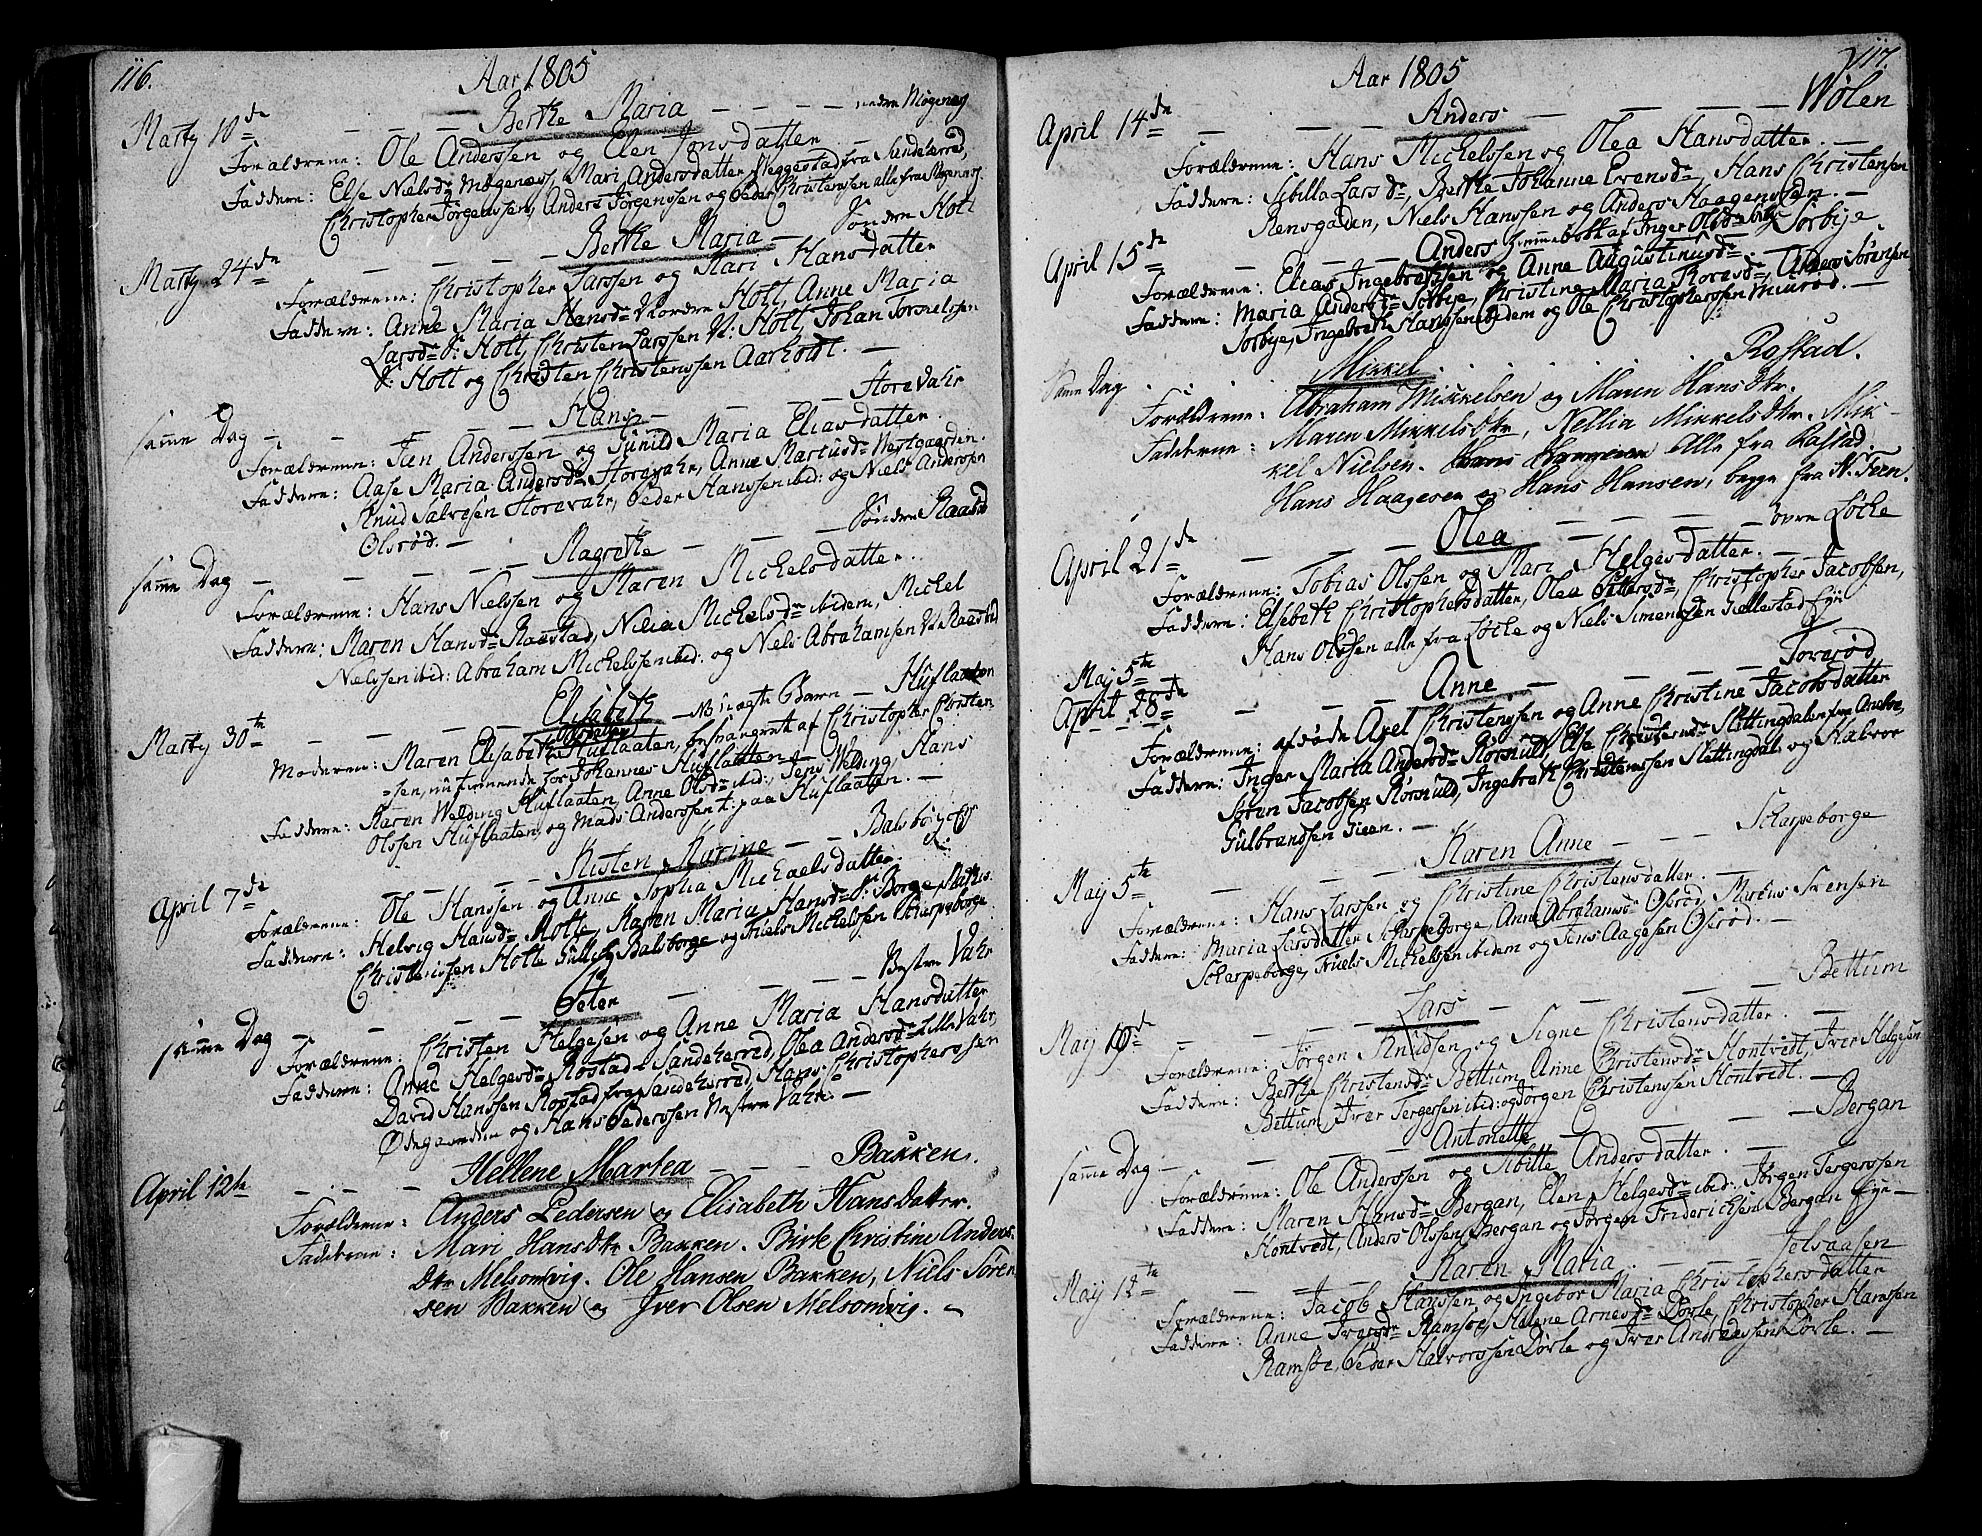 116.
Aar 1805
Marty 10de — — — Berthe Maria — — — nedre Mogenæs
Forældrene: Ole Anderssen og Elen Jonsdatter
Faddern: Else Nielsdr Mogenæss, Mari Andersdatter Veggestad fra Sandeherred,
Christopher Jørgenssen, Anders Jørgenssen og Peder Christenssen alle fra Mogenæss.
Marty 24de — — — Berthe Maria — Søndre Holt
Forældrene: Christopher Larssen og Mari Hansdatter
Faddern: Anne Maria Hansdr Nordre Holt, Anne Maria
Larsdr S: Holt, Christen Larssen N: Holt, Johan
S: Holt og Christen Christenssen Aarholdt. —
samme Dag — — — Hans — — — Store Vahr
Forældrene: Jan Anderssen og Gunild Maria Eliasdatter.
Faddern: Aase Maria Andersdr Storevahr, Anne Martusdr Westgaarden.
Knud Salvesen Storevahr, Peder Hanssen ibid: og Niels Anderssen
Olsrød. —
samme Dag — — — Magrethe — — — Søndre Raastad
Forældrene: Hans Nielssen og Maren Michelsdatter.
Faddern: Maren Hansdr Raastad, Nilia Michelsdr ibidem, Michel
Nielssen ibid: Abraham Michelssen ibid: og Niels Abrahamsen N: Raastad
Marty 30th — — — Elisabeth — NB: uægte Barn — Huflaaten
Moderen: Maren Elisabeth Olsdatter Huflaaten, besvangret af Christopher Christen
-sen, nu tienende for Johannes Huflaaten
Faddern: Karen Welding Huflaaten, Anne Olsdr ibid:, Jens Welding, Hans
Olssen Huflaaten, og Mads Anderssen t: paa Huflaaten. —
April 7de — — — Kisten Karine — Balsborge
Forældrene: Ole Hanssen og Anne Sophia Michaelsdatter.
Faddern: Helvig Hansdr Holte, Karen Maria Hansdr S: Borge, Mathis
Christenssen Holte, Gullich Balsborge og Truels Michelssen Scharpeborge
samme Dag — — — Peter — — — Nestre Vahr
Forældrene: Christen Helgesen og Anne Maria Hansdatter
Faddern: Anne Helgesdr Rostad i Sandeherred, Olea Andersdr Lille Vahr,
David Hanssen Rostad fra Sandeherred, Hans Christopherssen
Ødegaarden og Hans Pederssen Nestre Vahr. —
April 12te — — — Hellene Martea — — — Bakken.
Forældrene: Anders Pedersen og Elisabeth Hansdatter.
Fadderne: Mari Hansdtr Bakken. Birte Christine Anders
Dtr Melsomvig. Ole Hansen Bakken, Niels Søren
sen Bakken og Iver Olsen Melsomvig. —
117.
Aar 1805
April 14de — — — Anders — — — Wølen
Forældrene: Hans Michelssen og Olea Hansdatter. —
Faddern: Sibilla Larsdr, Berthe Johanne Evensdr, Hans Christensen
Rensgaden, Niels Hanssen og Anders Haagenssen. —
April 15de — — — Anders hjemmedøbt af Inger Olsdr Sorbye
Forældrene: Elias Ingebrethsen og Anne Augustinusdr
Faddern: Maria Andersdr Sorbye, Christine Maria Toresdr, Anders Sørensen
Sorbye, Ingebreth Hanssen ibidem og Ole Christopherssen Menrød. —
Same Dag . Mikkel . Rastad.
Forældrene: Abraham Mikkelsen og Maren Hansdtr.
Fadderne: Maren Mikkelsdtr, Nellia Mikkelsdtr. Mik-
kel Nielsen. alle fra Rastad.
Hans Haagesen og Hans Hansen, begge fra N. Feen.
April 21de — — — Olea — — — ovre Løcke
Forældrene: Tobias Olssen og Mari Helgesdatter.
Faddern: Elsebeth Christophersdatter, Olea Pettersdr, Christopher Jacobsen,
Hans Olssen alle fra Løcke og Niels Simenssen Gellestad Eje
May 5th
April 28de — — — Anne — — — Torerød
Forældrene: afdøde Axel Christenssen og Anne Christine Jacobsdatter
Faddern: Inger Maria Andersdr Rørkuld, Else Christensdr Slettingdalen fra Andebo,
Søren Jacobsen Rørkuld, Ingebreth Christenssen Slettingdal, og Halvor
Gulbrandsen Feen. —
May 5th — — — Karen Anne — — Scharpeborge
Forældrene: Hans Larssen og Christine Christensdatter. —
Faddern: Maria Larsdatter Scharpeborge, Anne Abrahamsdr Osrød, Martus Svensen
Scharpeborge, Truels Michelssen ibidem og Jens Aagesen Osrød. —
May 10de — — — Lars — — — Bettum
Forældrene: Jørgen Knudsen og Signe Christensdatter. —
Faddern: Berthe Christensdr Bettum, Anne Christensdr Hontvedt, Iver Helgesen
Bettum, Iver Tergersen ibid: og Jørgen Christenssen Hontvedt. —
samme Dag — — — Antonette — — — Bergan
Forældrene: Ole Anderssen og Sibille Andersdatter. —
Faddern: Maren Hansdr Bergan, Elen Helgesdr ibid: Jørgen Tergerssen
Hontvedt, Anders Olssen Bergan og Jørgen Friderichsen Bergan Eje —
May 12te — — — Karen Maria — Solvaasen
Forældrene: Jacob Hanssen og Ingebor Maria Christophersdatter
Faddern: Anne Iversdr Ramsøe, Helene Arnesdr Løvle, Christopher Hanssen
Ramsøe, Peder Halvorssen Løvle og Iver Andreassen Løvle. —